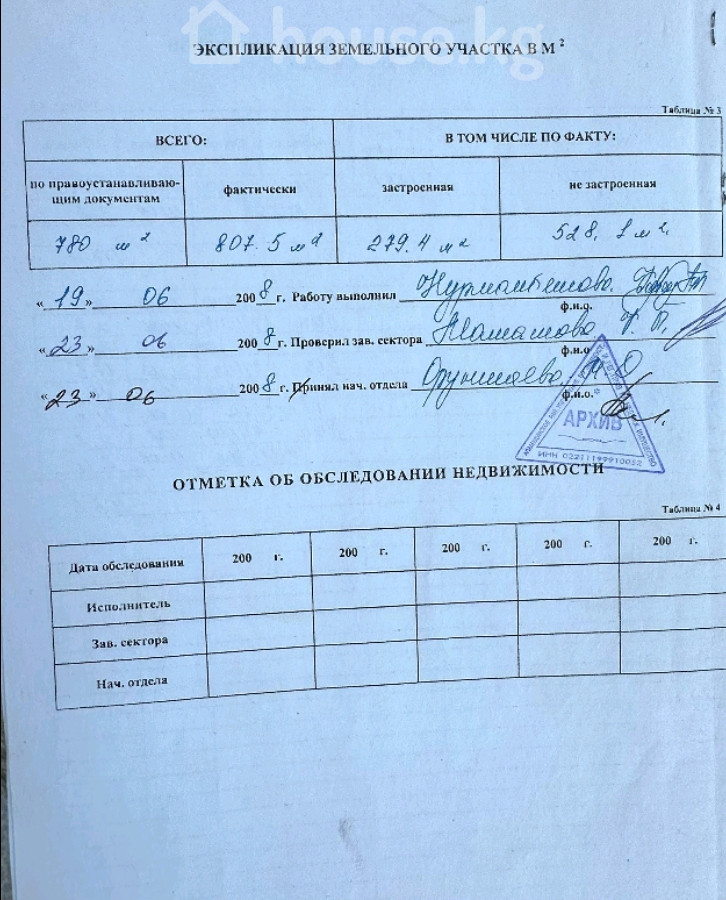 house.kg
ЭКСПЛИКАЦИЯ ЗЕМЕЛЬНОГО УЧАСТКА В М²
Таблица № 3
ВСЕГО: В ТОМ ЧИСЛЕ ПО ФАКТУ:
по правоустанавливаю-
щим документам фактически застроенная не застроенная
780 м² 807.5 м² 279.4 м² 528,1 м²,
«19» 06 2008 г. Работу выполнил
ф.и.о.
«23» 06 2008 г. Проверил зав. сектора
ф.и.о.
«23» 06 2008 г. Принял нач. отдела
ф.и.о.
АРХИВ
ИНН 02211199910052
ОТМЕТКА ОБ ОБСЛЕДОВАНИИ НЕДВИЖИМОСТИ
Таблица № 4
Дата обследования 200 г. 200 г. 200 г. 200 г. 200 г.
Исполнитель
Зав. сектора
Нач. отдела